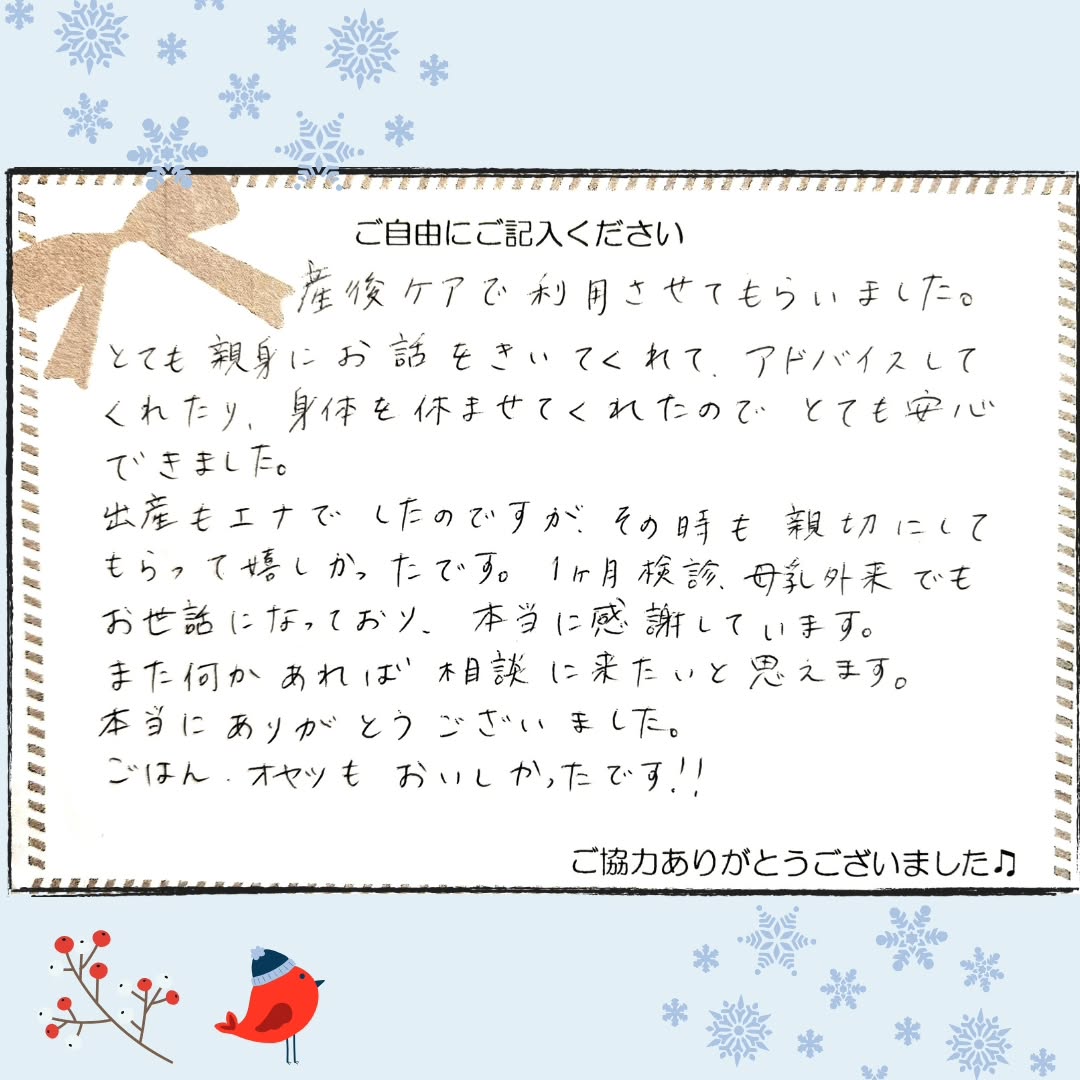 ご自由にご記入ください
産後ケアで利用させてもらいました。
とても親身にお話をきいてくれて、アドバイスして
くれたり、身体を休ませてくれたのでとても安心
できました。
出産もエナでしたのですが、その時も親切にして
もらって嬉しかったです。1ヶ月検診、母乳外来でも
お世話になっており、本当に感謝しています。
また何かあれば相談に来たいと思えます。
本当にありがとうございました。
ごはん・オヤツもおいしかったです!!
ご協力ありがとうございました♫